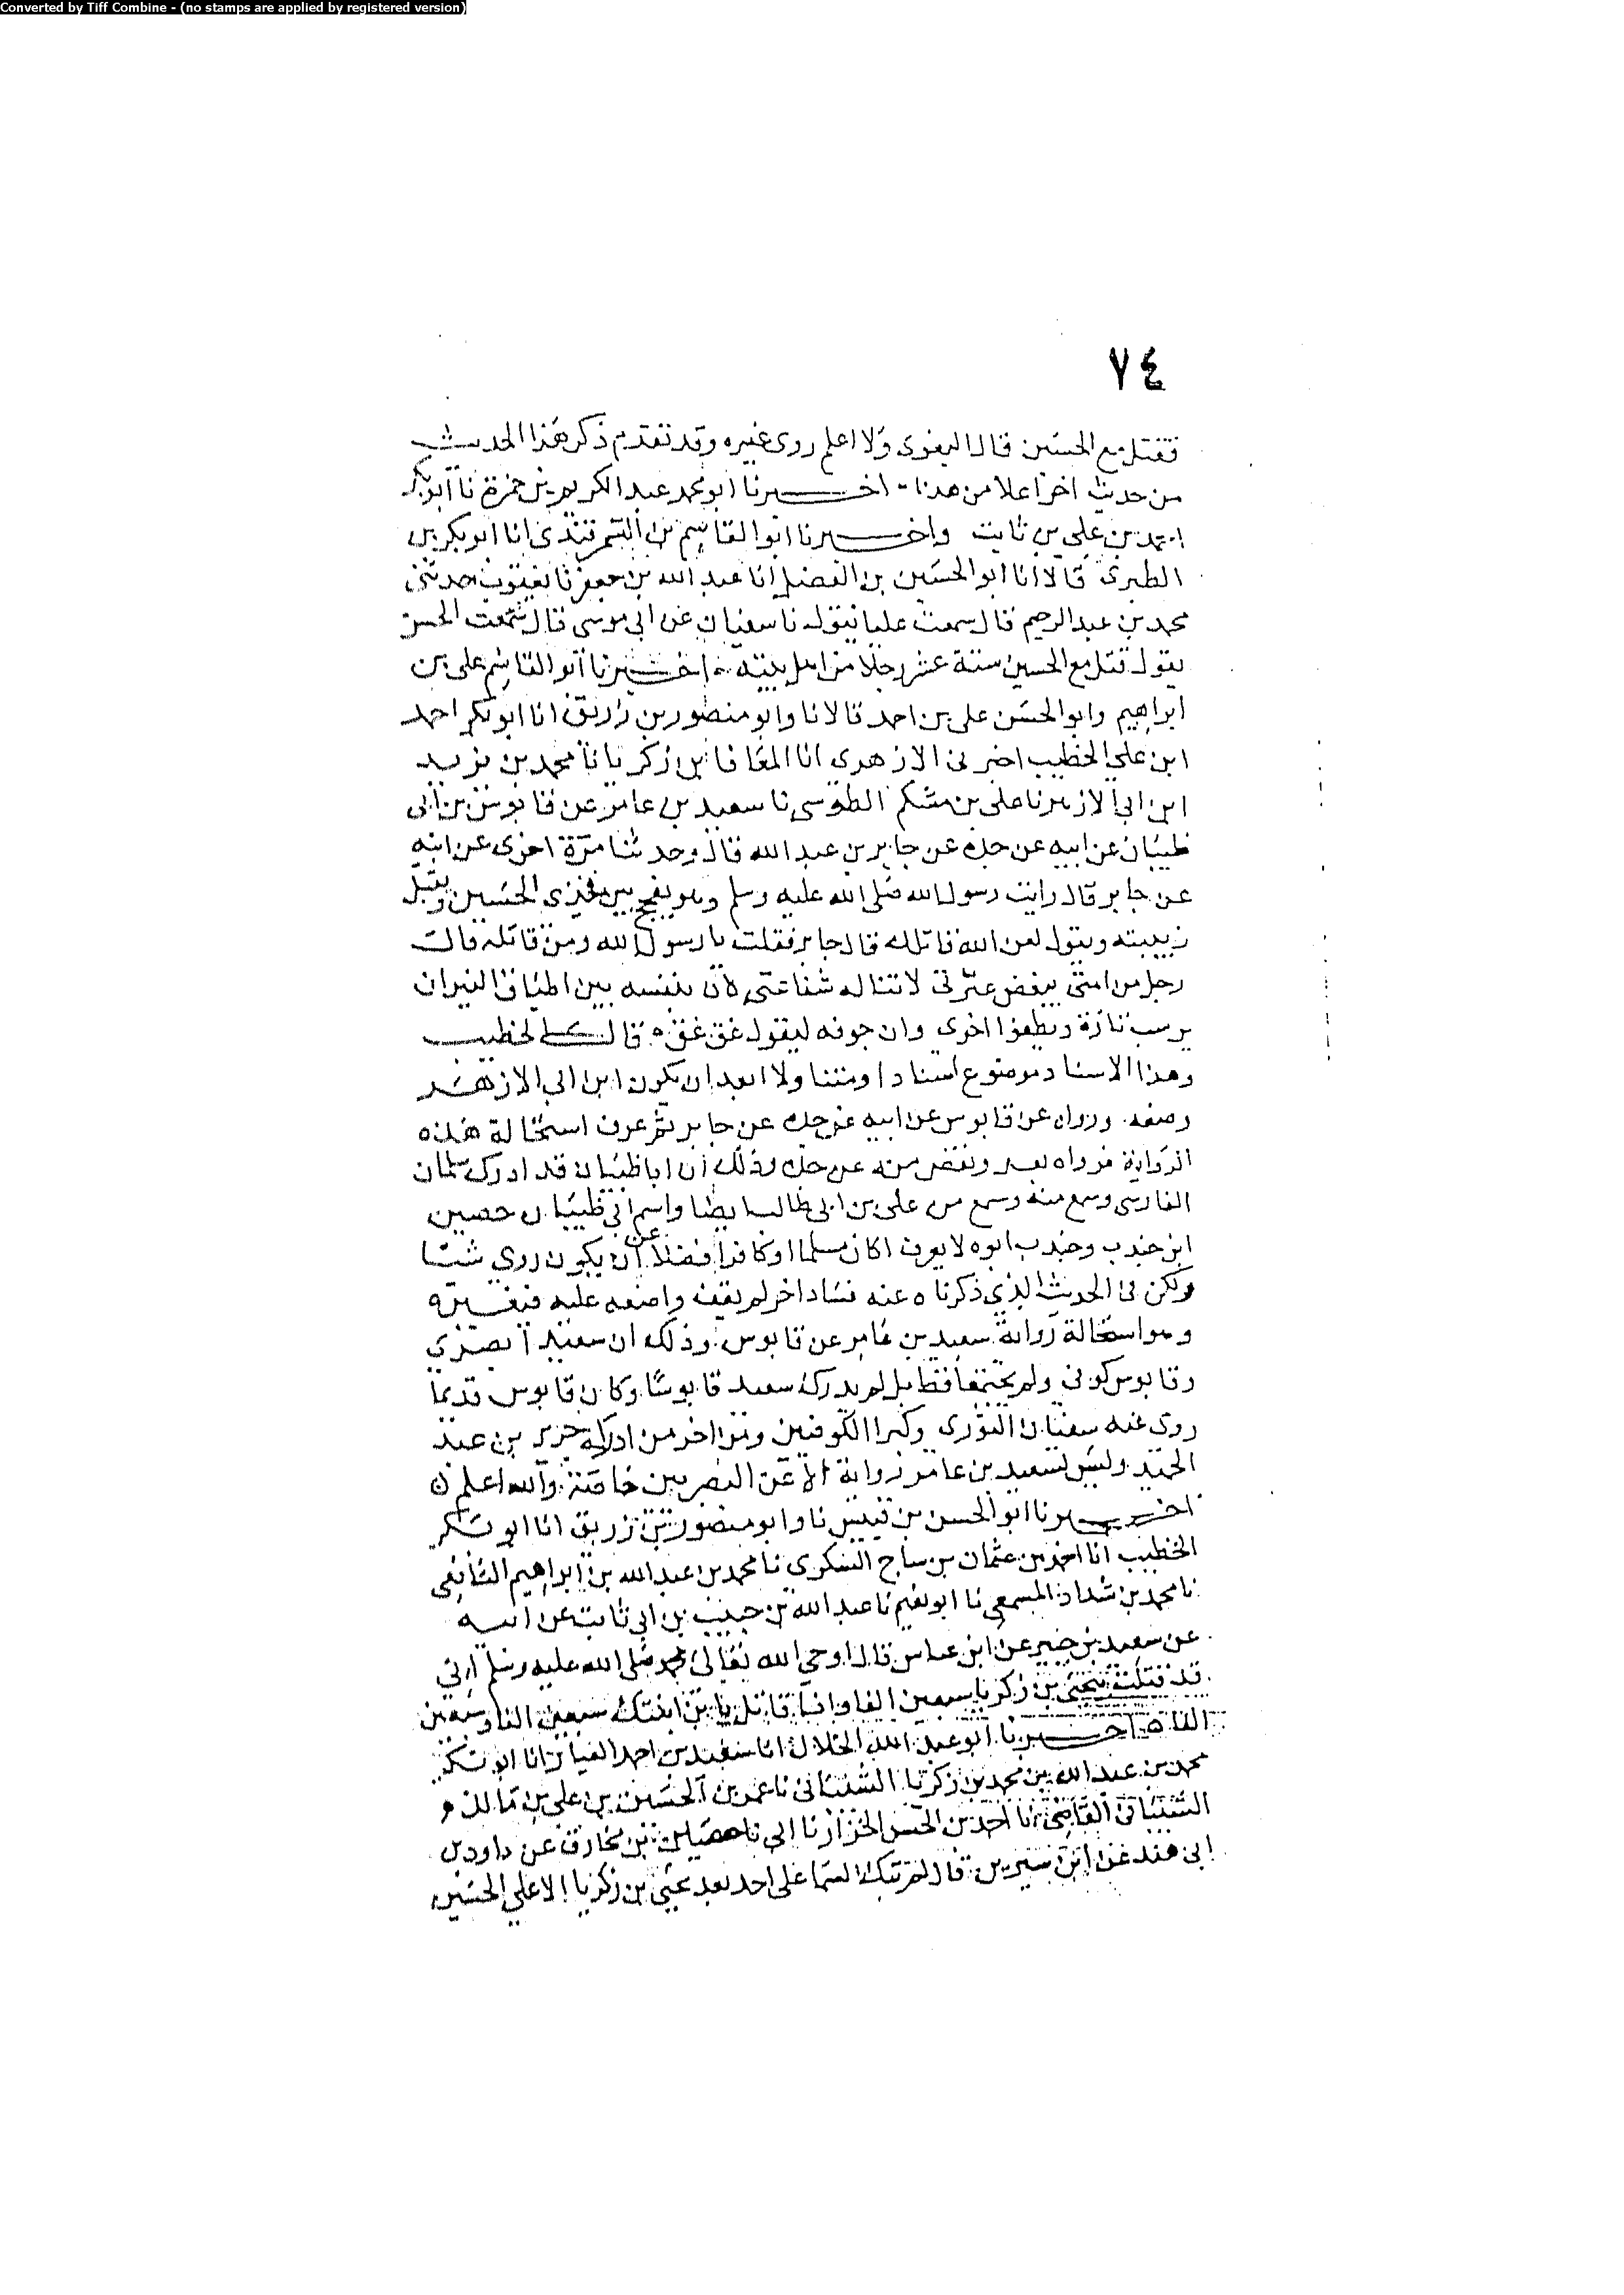 Converted by Tiff Combine - (no stamps are applied by registered version)
٧٤
فقتل مع الحسين قال البغوي ولا اعلم روى غيره وقد تقدم ذكر هذا الحديث
من حديث اخر اعلا من هذا اخبرنا ابو محمد عبد الكريم بن حمزة نا ابو بكر
احمد بن علي بن ثابت واخبرنا ابو القاسم بن السمرقندى انا ابو بكر بن
الطبرى قالا انا ابو الحسين بن الفضل انا عبد الله بن جعفر نا يعقوب حدثنى
محمد بن عبد الرحيم قال سمعت عليا يقول نا سفيان عن ابى موسى قال سمعت الحسن
يقول قتل مع الحسين ستة عشر رجلا من اهل بيته اخبرنا ابو القاسم على بن
ابراهيم وابو الحسن على بن احمد قالا نا وابو منصور بن زريق انا ابو بكر احمد
ابن علي الخطيب اخبرنى الازهرى انا المعافا بن زكريا نا محمد بن مزيد
ابن ابي الازهر نا على بن مسلم الطوسى نا سعيد بن عامر عن قابوس بن ابى
ظبيان عن ابيه عن جده عن جابر بن عبد الله قال وحدثنا مرة اخرى عن ابيه
عن جابر قال رايت رسول الله صلى الله عليه وسلم وهو يفحج بين فخذى الحسين ويقبل
زبيبته ويقول لعن الله قاتلك قال جابر فقلت يا رسول الله ومن قاتله قال
رجل من امتى يبغض عترتى لا تناله شفاعتى كان بنفسه بين اطباق النيران
يرسب تارة ويطفوا اخرى وان جوفه ليقول غق غق ه قال الخطيب
وهذا الاسناد موضوع اسنادا ومتنا ولا ابعد ان يكون ابن ابى الازهر
وضعه ورواه عن قابوس عن ابيه عن جده عن جابر ثم عرف استحالة هذه
الرواية فرواه بعد ونقص منه عن جده وذلك ان ابا ظبيان قد ادرك سلمان
الفارسى وسمع منه وسمع من على بن ابى طالب ايضا واسم ابى ظبيان حصين
ابن جندب وجندب ابوه لا يعرف اكان مسلما او كافرا فضلا عن ان يكون روى شيئا
ولكن فى الحديث الذى ذكرناه عنه فساد اخر لم يقف واضعه عليه فيغيره
وهو استحالة رواية سعيد بن عامر عن قابوس وذلك ان سعيدا بصري
وقابوس كوفى ولم يجتمعا قط بل لم يدرك سعيد قابوسا وكان قابوس قديما
روى عنه سفيان الثورى وكبرا الكوفيين ومن اخر من ادركه جرير بن عبد
الحميد وليس لسعيد بن عامر رواية الا عن البصريين خاصة والله اعلم ن
اخبرنا ابو الحسن بن قبيس نا وابو منصور بن زريق انا ابو بكر
الخطيب انا احمد بن عثمان بن ساج السكرى نا محمد بن عبد الله بن ابراهيم الشافعى
نا محمد بن شداد المسمعى نا ابو نعيم نا عبد الله بن حبيب بن ابى ثابت عن ابيه
عن سعيد بن جبير عن ابن عباس قال اوحى الله تعالى محمد صلى الله عليه وسلم انى
قد قتلت بيحيى بن زكريا سبعين الفا وانا قاتل بابن ابنتك سبعين الفا وسبعين
الفا ه اخبرنا ابو عبد الله الخلال انا سعيد بن احمد العيار انا ابو بكر
محمد بن عبد الله بن محمد بن زكريا الشيبانى نا عمر بن الحسين بن على بن مالك
الشيبانى القاضى نا احمد بن الحسن الخزاز نا ابى نا حصين بن مخارق عن داود بن
ابى هند عن ابن سيرين قال لم تبك السما على احد بعد يحيى بن زكريا الا على الحسين